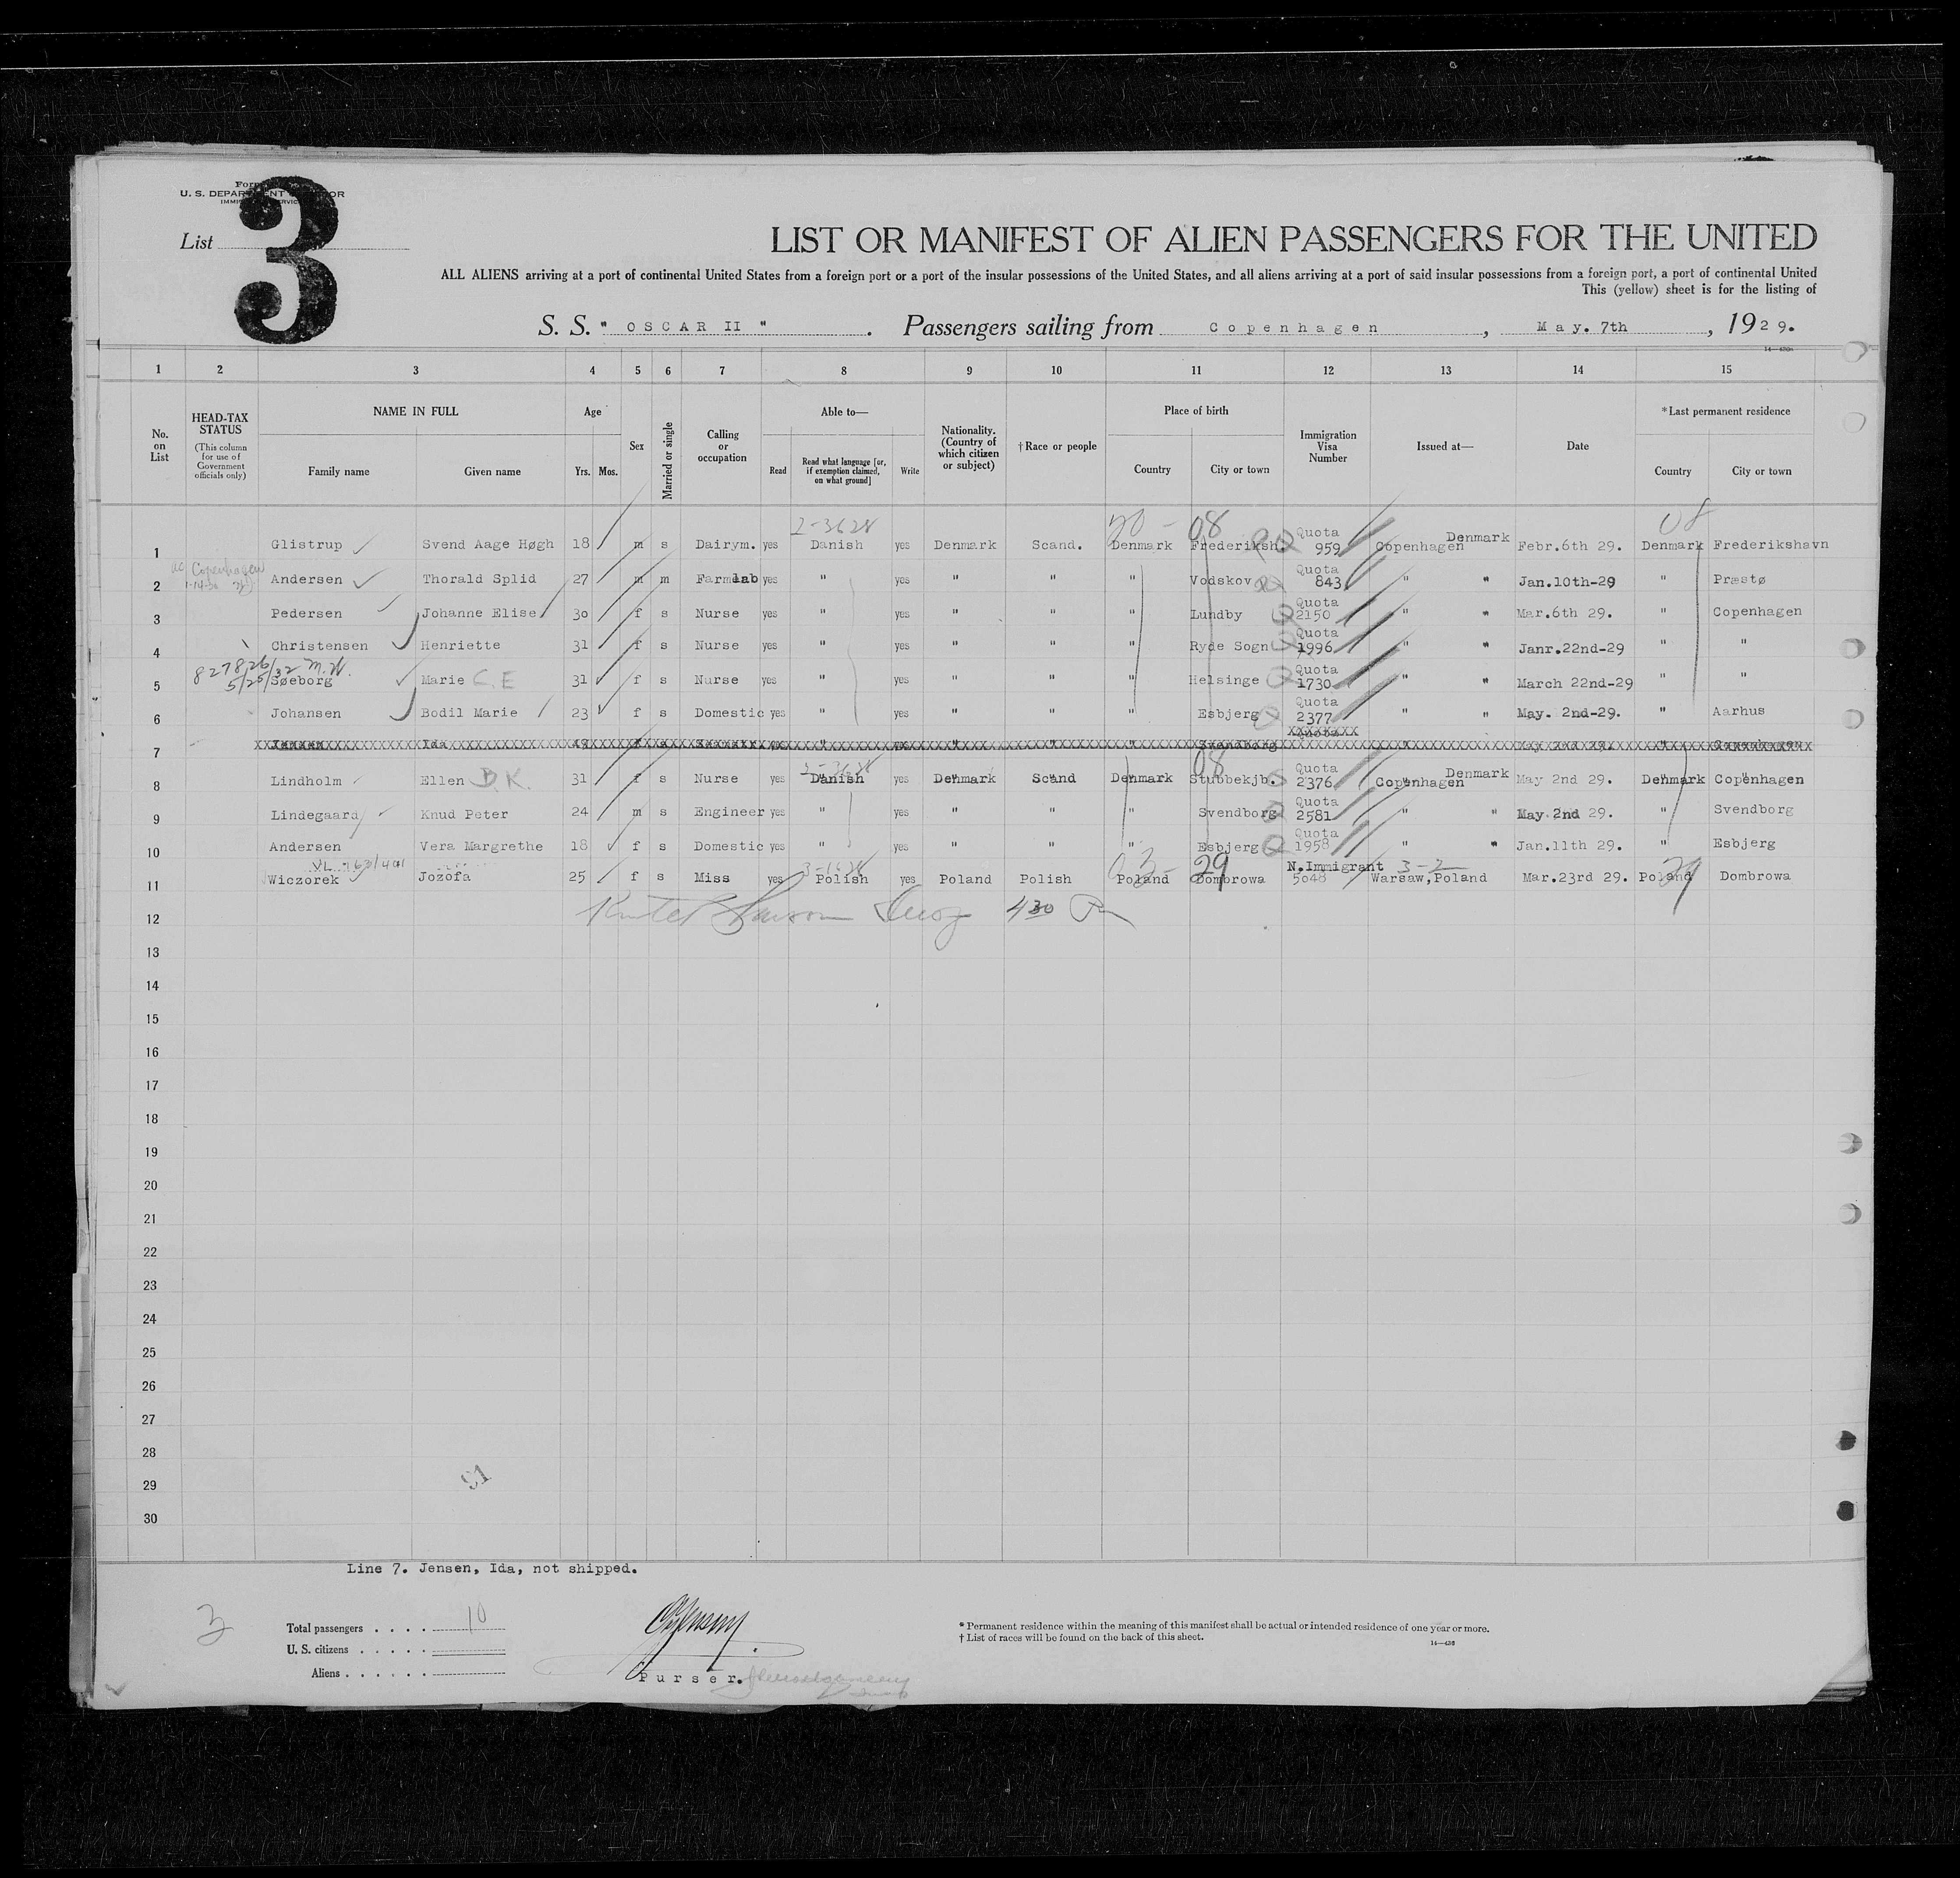 U. S. DEPARTMENT OF LABOR
List
3
LIST OR MANIFEST OF ALIEN PASSENGERS FOR THE UNITED
ALL ALIENS arriving at a port of continental United States from a foreign port or a port of the insular possessions of the United States, and all aliens arriving at a port of said insular possessions from a foreign port, a port of continental United
This (yellow) sheet is for the listing of
S. S. " OSCAR II " . Passengers sailing from Copenhagen , May. 7th , 1929.
1 2 3 4 5 6 7 8 9 10 11 12 13 14 15
No. on List
HEAD-TAX STATUS (This column for use of Government officials only)
NAME IN FULL Family name Given name
Age Yrs. Mos.
Sex
Married or single
Calling or occupation
Able to— Read Read what language [or, if exemption claimed, on what ground] Write
Nationality. (Country of which citizen or subject)
† Race or people
Place of birth Country City or town
Immigration Visa Number
Issued at—
Date
* Last permanent residence Country City or town
2-3628 08 08
1 Glistrup Svend Aage Høgh 18 m s Dairym. yes Danish yes Denmark Scand. Denmark Frederiksh. Quota 959 Copenhagen Denmark Febr.6th 29. Denmark Frederikshavn
Copenhagen
2 Andersen Thorald Splid 27 m m Farmlab yes " yes " " " Vodskov Quota 843 " " Jan.10th-29 " Præstø
3 Pedersen Johanne Elise 30 f s Nurse yes " yes " " " Lundby Quota 2150 " " Mar.6th 29. " Copenhagen
4 Christensen Henriette 31 f s Nurse yes " yes " " " Ryde Sogn Quota 1996 " " Janr.22nd-29 " "
82786 5/25/32 M.W.
5 Søeborg Marie C.E 31 f s Nurse yes " yes " " " Helsinge Quota 1730 " " March 22nd-29 " "
6 Johansen Bodil Marie 23 f s Domestic yes " yes " " " Esbjerg Quota 2377 " " May. 2nd-29. " Aarhus
7 Jensen Ida 49 f s Seamstr. yes " yes " " " Svendborg Quota " May 2nd 29. " Copenhagen
8 Lindholm Ellen B.K. 31 f s Nurse yes Danish yes Denmark Scand Denmark Stubbekjb. Quota 2376 Copenhagen Denmark May 2nd 29. Denmark Copenhagen
9 Lindegaard Knud Peter 24 m s Engineer yes " yes " " " Svendborg Quota 2581 " " May 2nd 29. " Svendborg
10 Andersen Vera Margrethe 18 f s Domestic yes " yes " " " Esbjerg Quota 1958 " " Jan.11th 29. " Esbjerg
11 Wiczorek Jozofa 25 f s Miss yes Polish yes Poland Polish Poland Dombrowa N.Immigrant 5048 Warsaw,Poland Mar.23rd 29. Poland Dombrowa
12
13
14
15
16
17
18
19
20
21
22
23
24
25
26
27
28
29
30
Line 7. Jensen, Ida, not shipped.
3
Total passengers . . . . 10
U. S. citizens . . . . .
Aliens . . . . . .
Purser.
* Permanent residence within the meaning of this manifest shall be actual or intended residence of one year or more.
† List of races will be found on the back of this sheet.